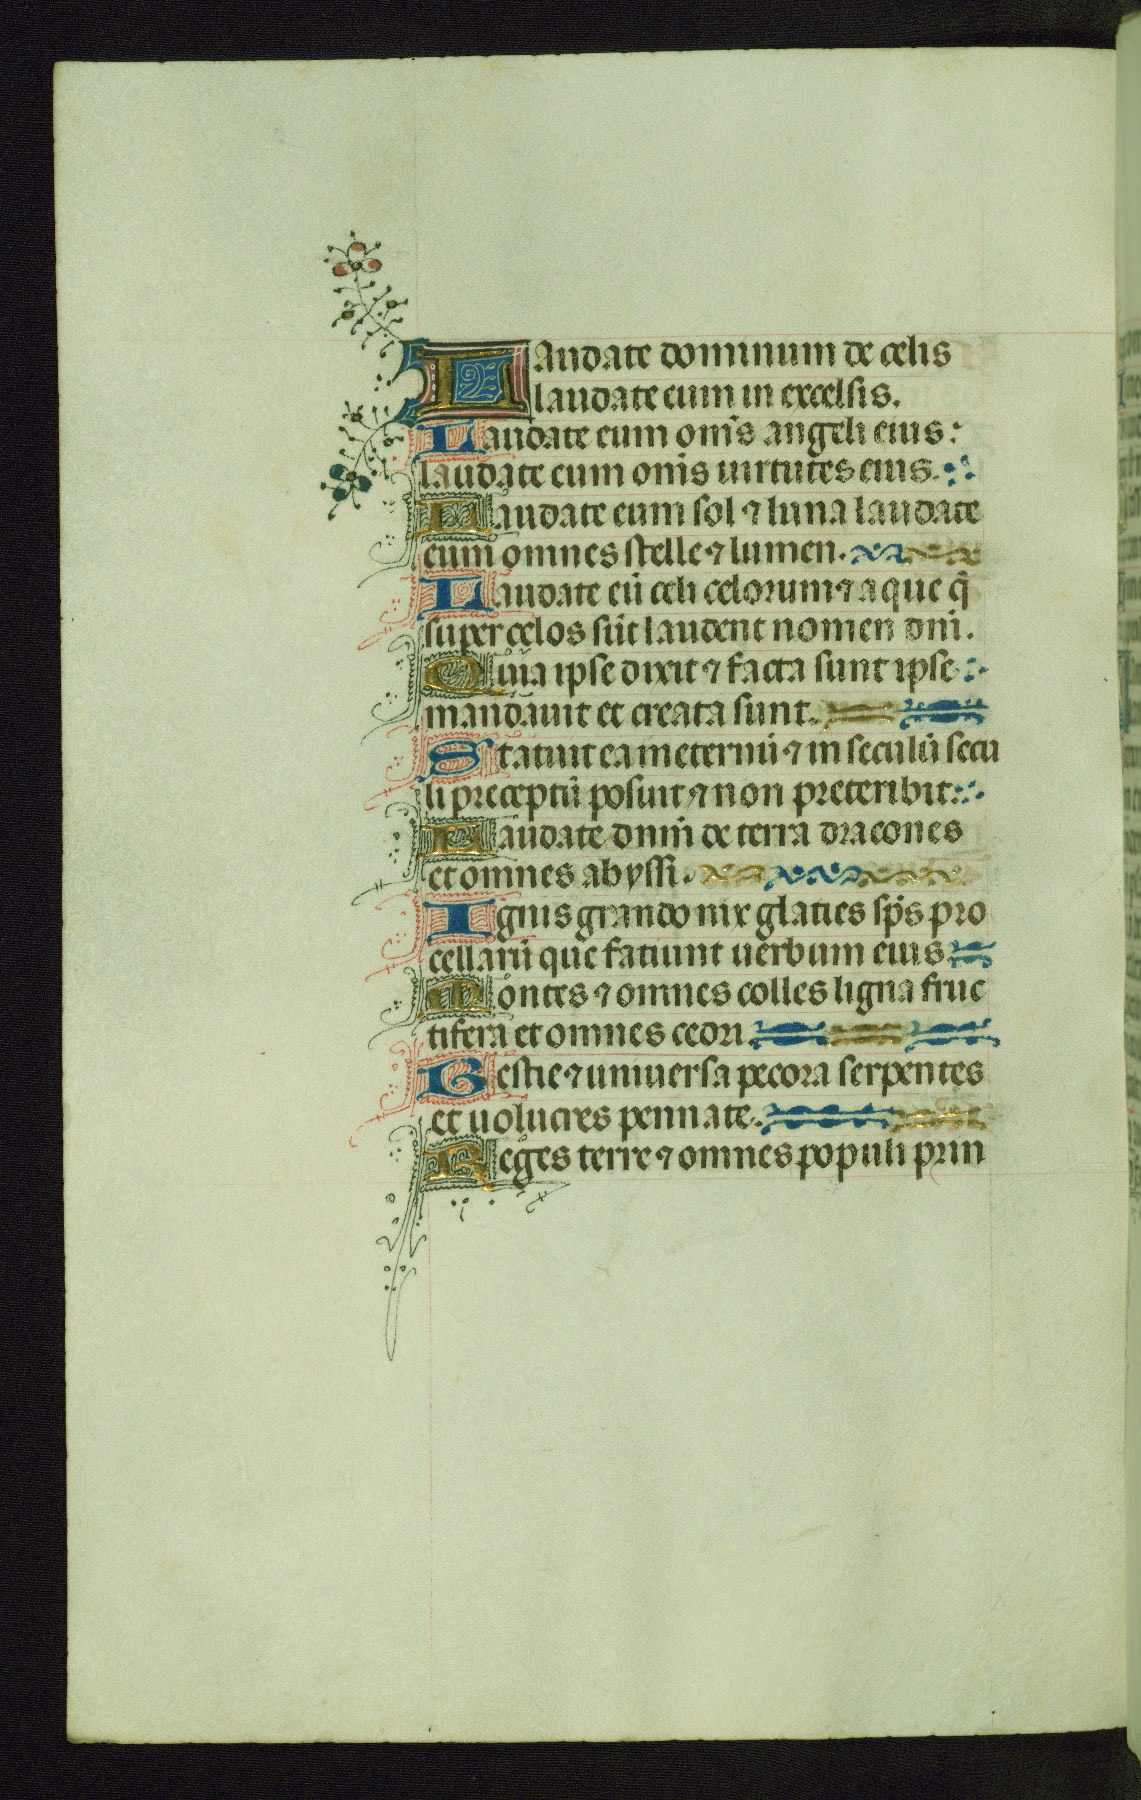 Laudate dominum de celis
laudate eum in excelsis.
Laudate eum om̅s angeli eius:
laudate eum om̅s uirtutes eius.
Laudate eum sol ⁊ luna laudate
eum omnes stelle ⁊ lumen.
Laudate eū celi celorum ⁊ aque q̄
super celos sūt laudent nomen dn̅i.
Quia ipse dixit ⁊ facta sunt ipse
mandauit et creata sunt.
Statuit ea in eternū ⁊ in seculū secu
li preceptū posuit ⁊ non preteribit.
Laudate dn̅m de terra dracones
et omnes abyssi.
Ignis grando nix glaties sp̅s pro
cellarū que fatiunt uerbum eius
Montes ⁊ omnes colles ligna fruc
tifera et omnes cedri.
Bestie ⁊ uniuersa pecora serpentes
et uolucres pennate.
Reges terre ⁊ omnes populi prin